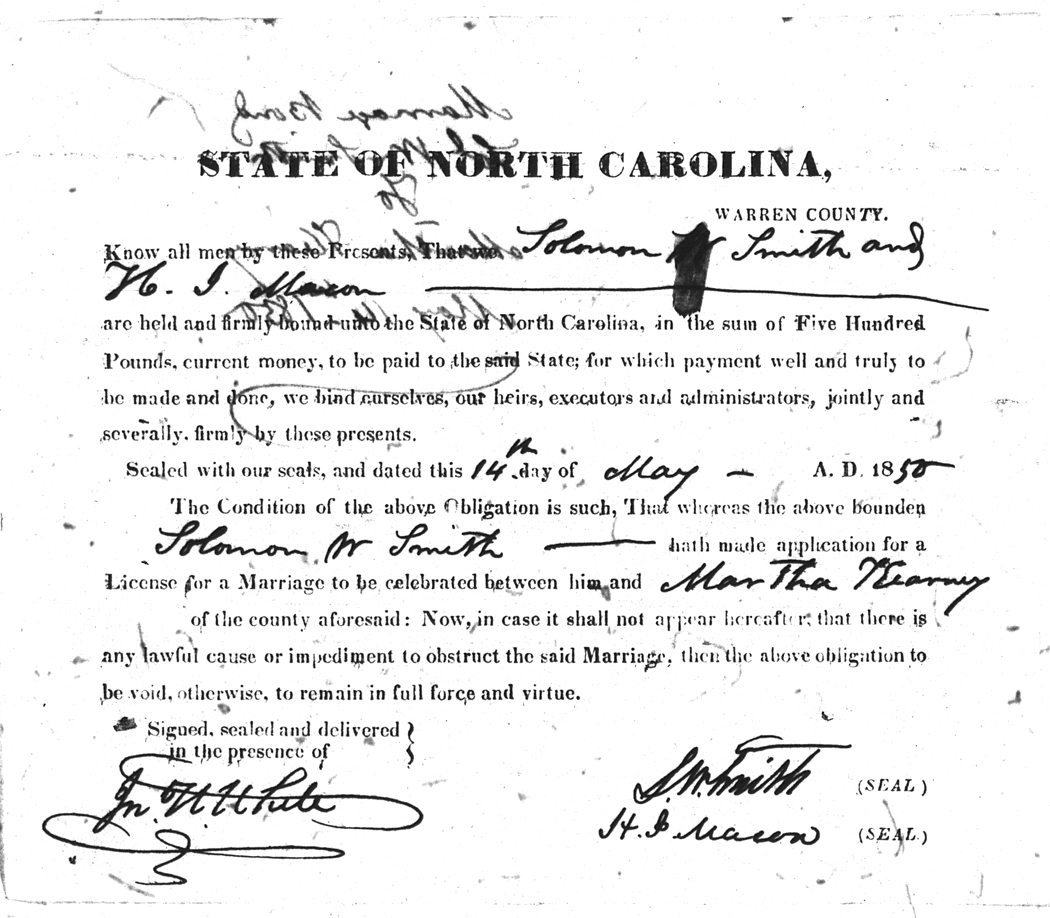 STATE OF NORTH CAROLINA,
WARREN COUNTY.
Know all men by these Presents, That we Solomon W Smith and
H. J. Macon
are held and firmly bound unto the State of North Carolina, in the sum of Five Hundred
Pounds, current money, to be paid to the said State; for which payment well and truly to
be made and done, we bind ourselves, our heirs, executors and administrators, jointly and
severally, firmly by these presents.
Sealed with our seals, and dated this 14th day of May A. D. 1850
The Condition of the above Obligation is such, That whereas the above bounden
Solomon W Smith hath made application for a
License for a Marriage to be celebrated between him and Martha Kearney
of the county aforesaid: Now, in case it shall not appear hereafter, that there is
any lawful cause or impediment to obstruct the said Marriage, then the above obligation to
be void, otherwise, to remain in full force and virtue.
Signed, sealed and delivered
in the presence of
Jn. W. White
S. W. Smith (SEAL)
H. J. Macon (SEAL)